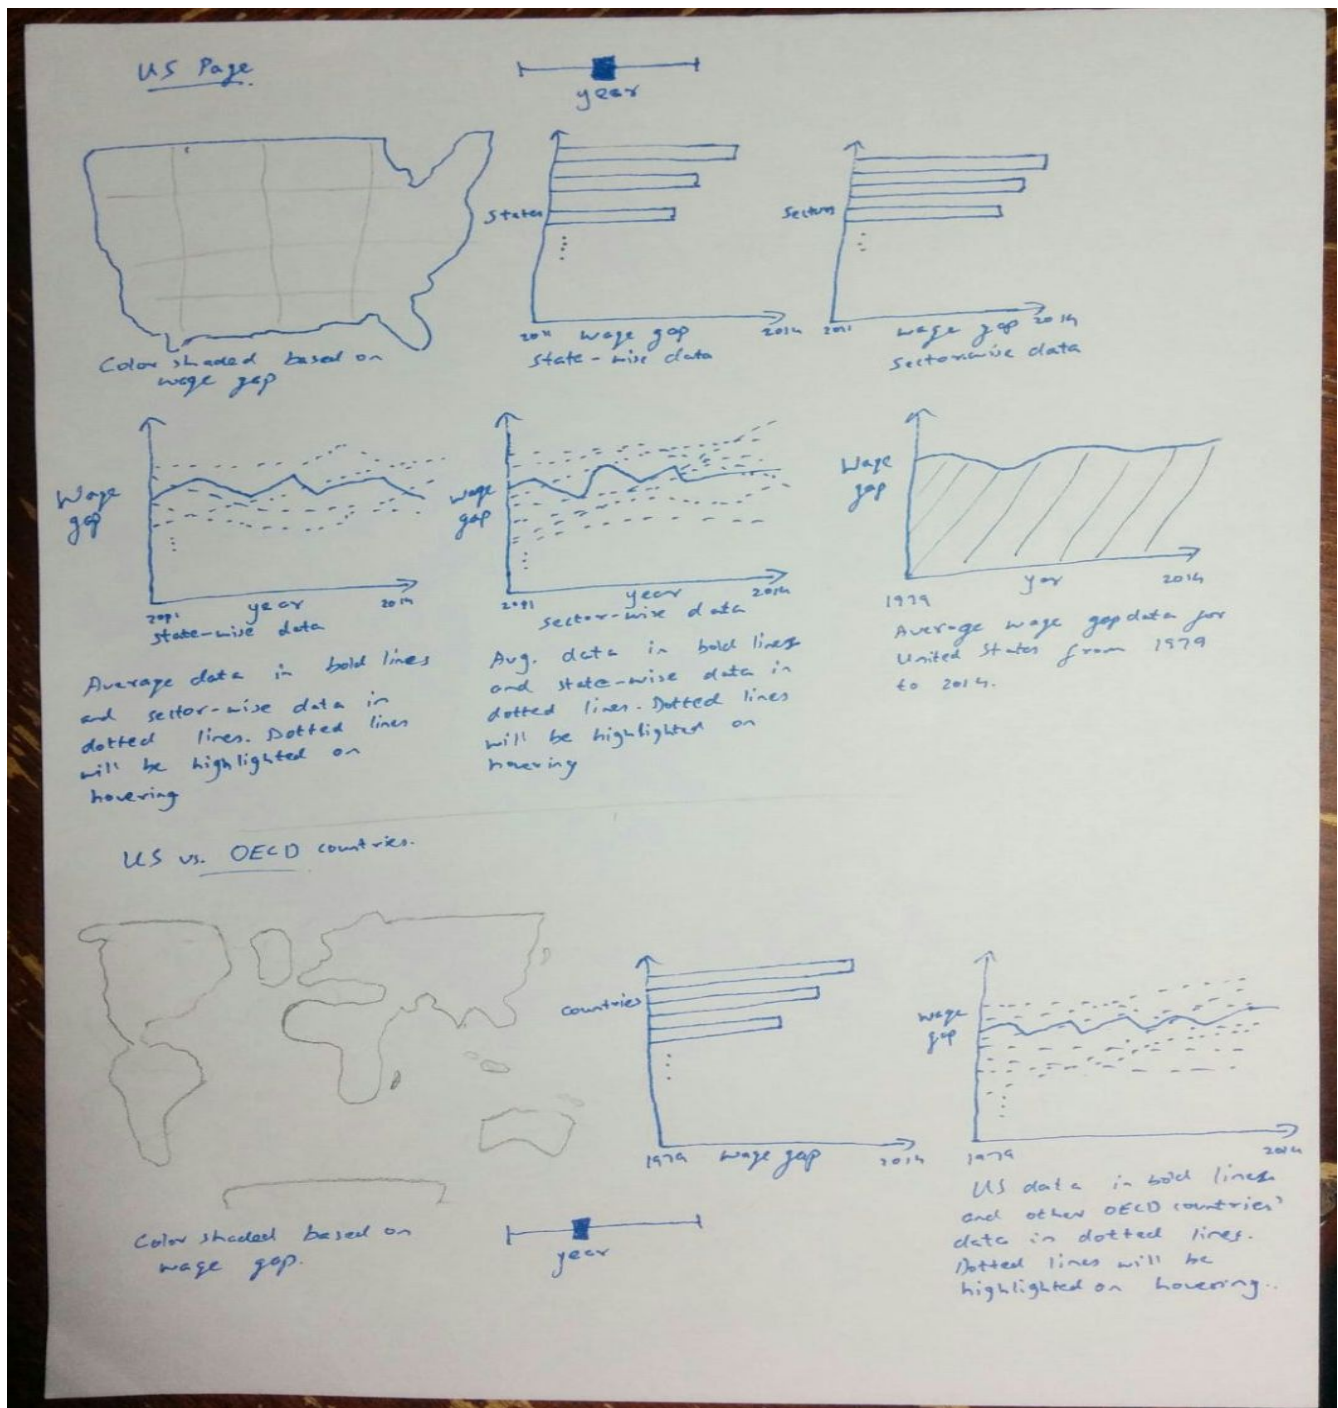 US Page
year
States
2011 wage gap 2014
State-wise data
Sectors
2011 wage gap 2014
Sector-wise data
Color shaded based on
wage gap
Wage
gap
2011 year 2014
State-wise data
Average data in bold lines
and sector-wise data in
dotted lines. Dotted lines
will be highlighted on
hovering
wage
gap
2011 year 2014
Sector-wise data
Avg. data in bold lines
and state-wise data in
dotted lines. Dotted lines
will be highlighted on
hovering
Wage
gap
1979 year 2014
Average wage gap data for
United States from 1979
to 2014.
US vs. OECD countries.
Color shaded based on
wage gap.
Countries
1979 wage gap 2014
year
wage
gap
1979 2014
US data in bold lines
and other OECD countries'
data in dotted lines.
Dotted lines will be
highlighted on hovering..